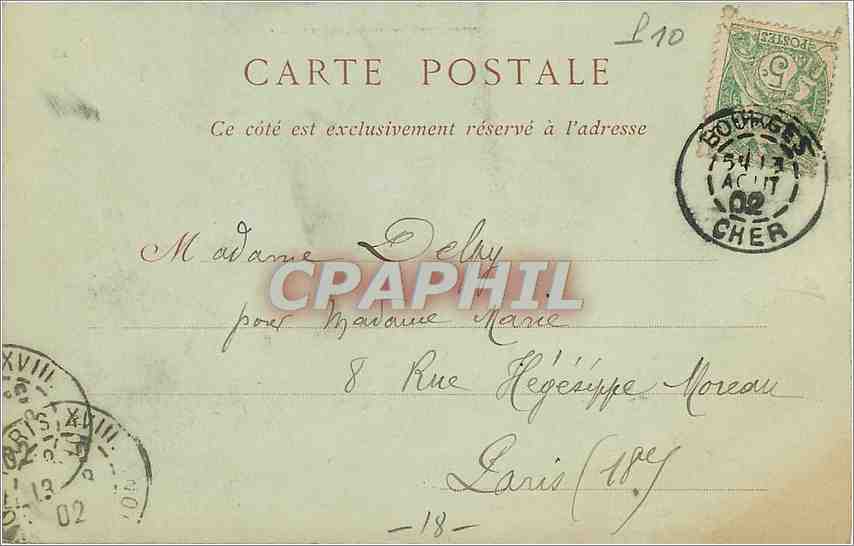 P10
5c
POSTES
CARTE POSTALE
Ce côté est exclusivement réservé à l'adresse
BOURGES
AOUT
02
CHER
Madame
CPAPHIL
pour Madame Marie
8 Rue Hégésippe Moreau
Paris (18e)
XVIII.
PARIS
13
02
XVIII.
-18-